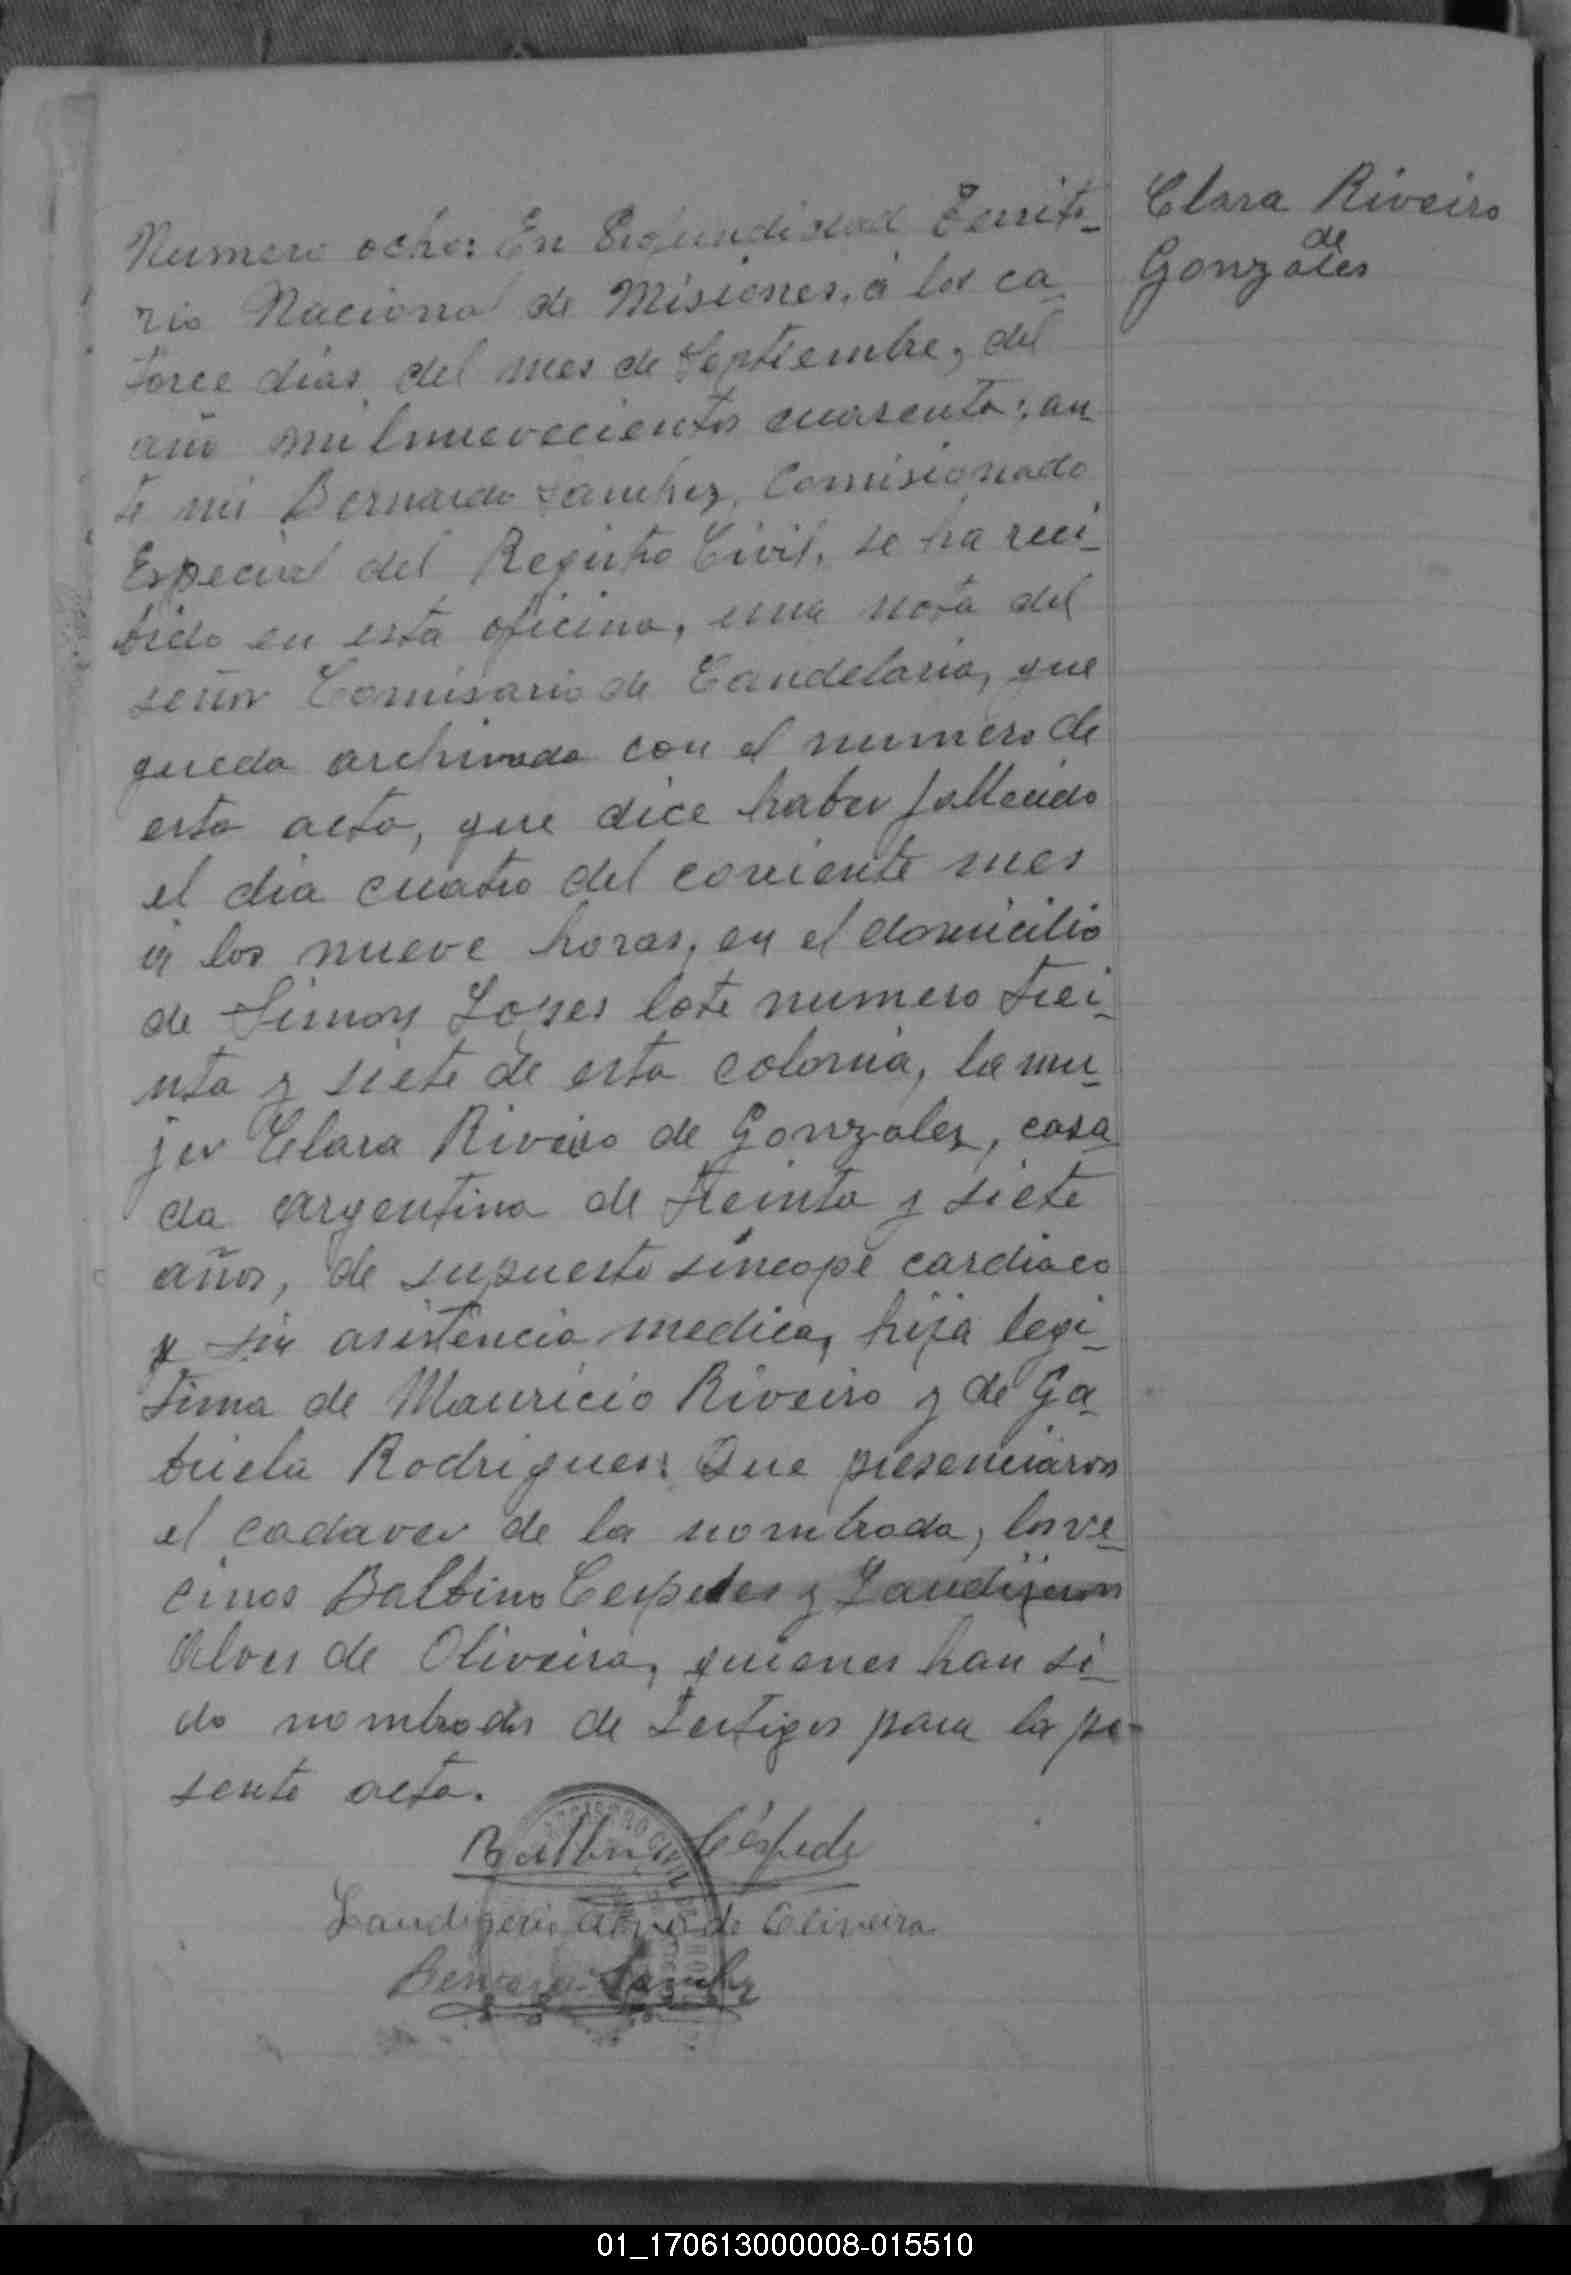 Clara Riveiro
de
Gonzales
Numero ocho: En Profundidad Territo-
rio Nacional de Misiones, á los ca-
torce dias del mes de Septiembre, del
año mil nuevecientos cuarenta; an-
te mi Bernardo Sanchez, Comisionado
Especial del Registro Civil, se ha reci-
bido en esta oficina, una nota del
señor Comisario de Candelaria, que
queda archivada con el numero de
esta acta, que dice haber fallecido
el dia cuatro del corriente mes
á las nueve horas, en el domicilio
de Simon Lopes lote numero trei-
nta y siete de esta colonia, la mu-
jer Clara Riveiro de Gonzalez, casa
da argentina de treinta y siete
años, de supuesto sincope cardiaco
y sin asistencia medica, hija legi-
tima de Mauricio Riveiro y de Ga-
briela Rodrigues: Que presenciaron
el cadaver de la nombrada, los ve-
cinos Balbino Cespedes y
Alves de Oliveira, quienes han si-
do nombrados de testigos para la pre-
sente acta.
Balbino Céspede
Alves de Oliveira
Bernardo Sanchez
REGISTRO CIVIL
01_170613000008-015510